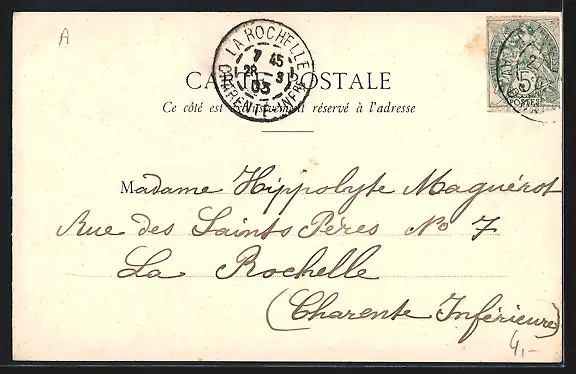 A
LA ROCHELLE
7 45
28 3
03
CHARENTE-INFRE
5c
POSTES
CARTE POSTALE
Ce côté est exclusivement réservé à l'adresse
Madame Hippolyte Maguérot
Rue des Saints Pères No 7
La Rochelle
(Charente Inférieure)
4,-